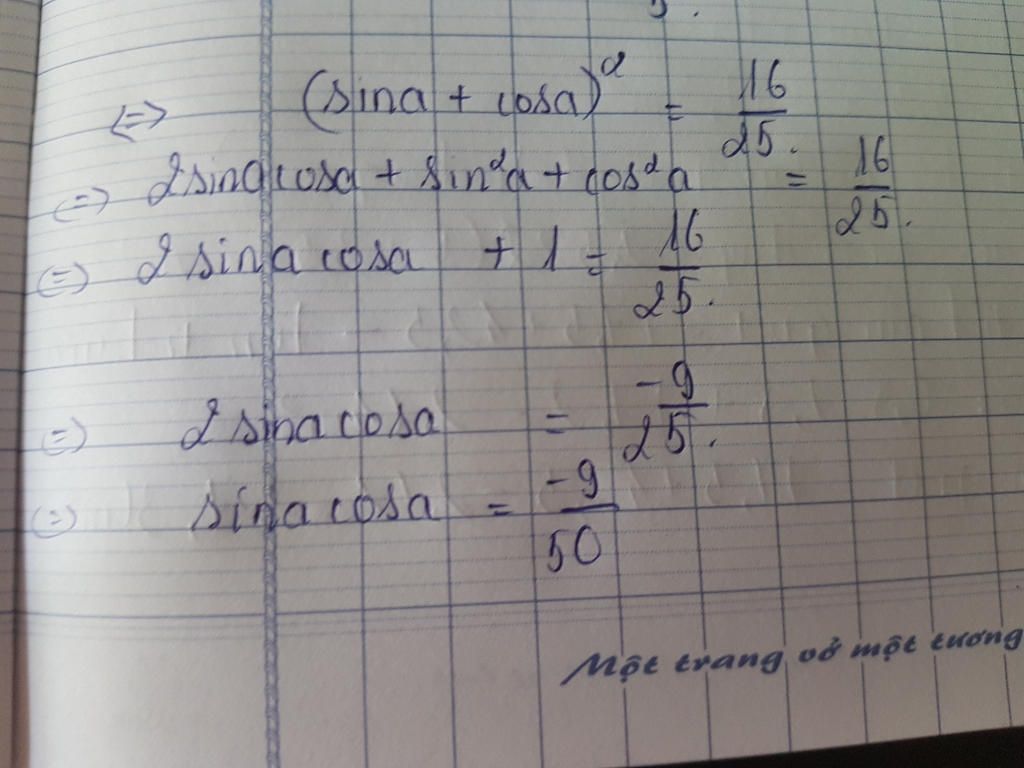 5.
⇔ (sina + cosa)² = 16/25.
⇔ 2sinacosa + sin²a + cos²a = 16/25.
⇔ 2sinacosa + 1 = 16/25.
⇔ 2sinacosa = -9/25.
⇔ sinacosa = -9/50
Một trang vở một tương